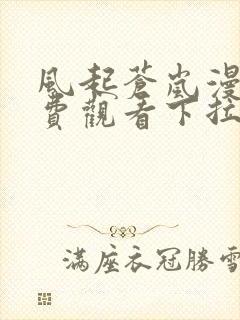 風起蒼嵐漫
費觀看下拉
滿座衣冠勝雪